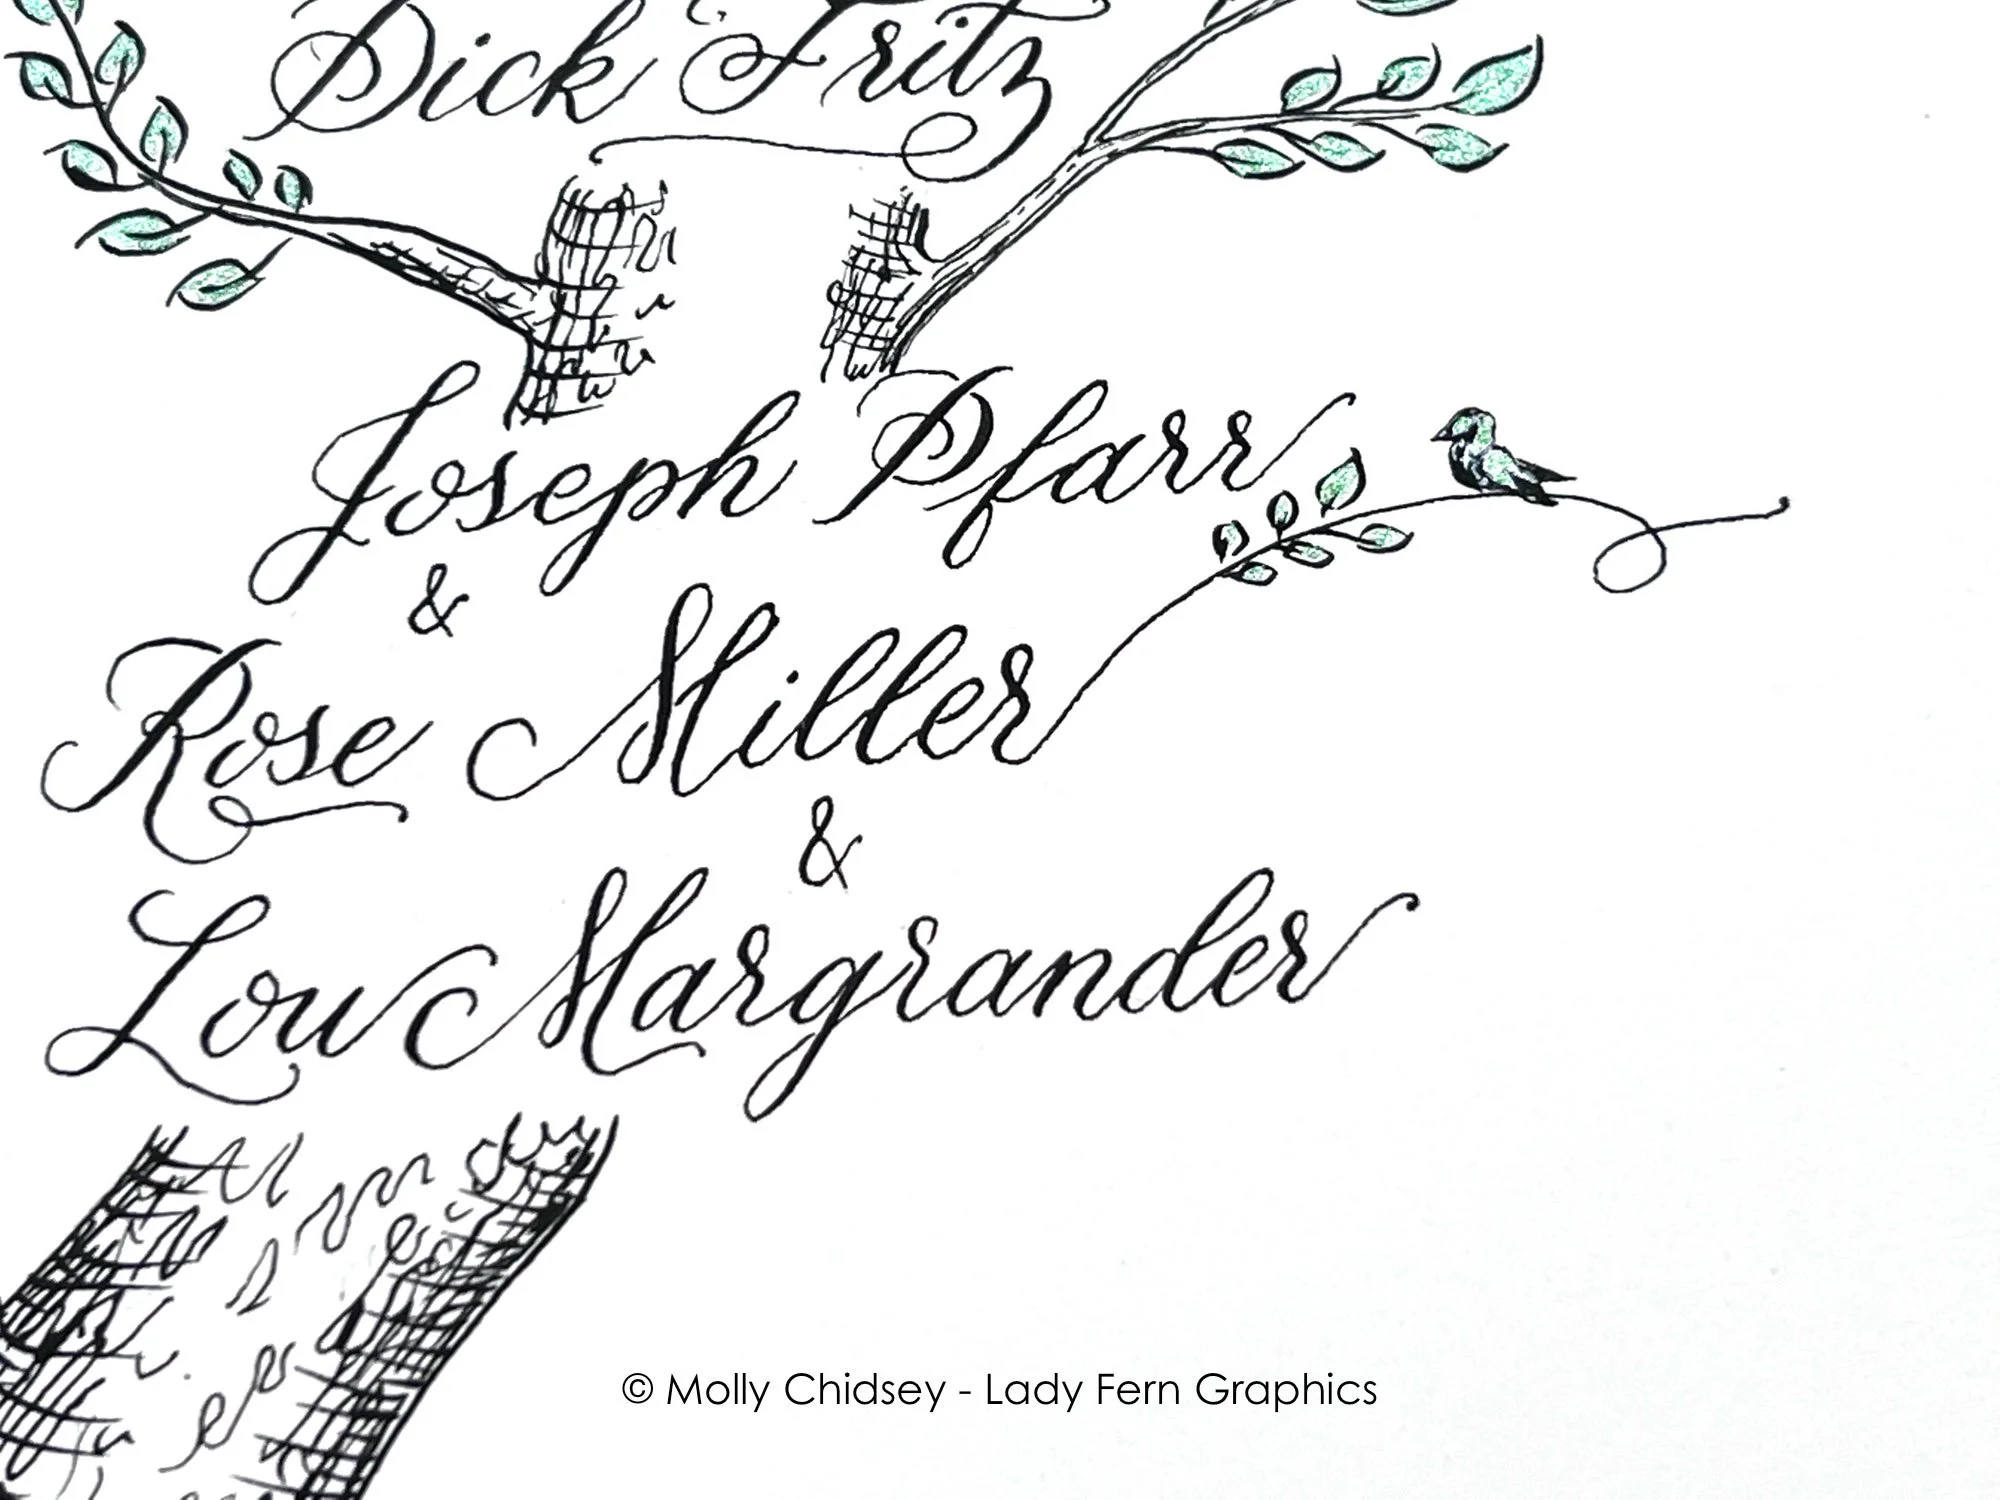 Dick Fritz
Joseph Pfarr
&
Rose Miller
&
Lou Margrander
© Molly Chidsey - Lady Fern Graphics